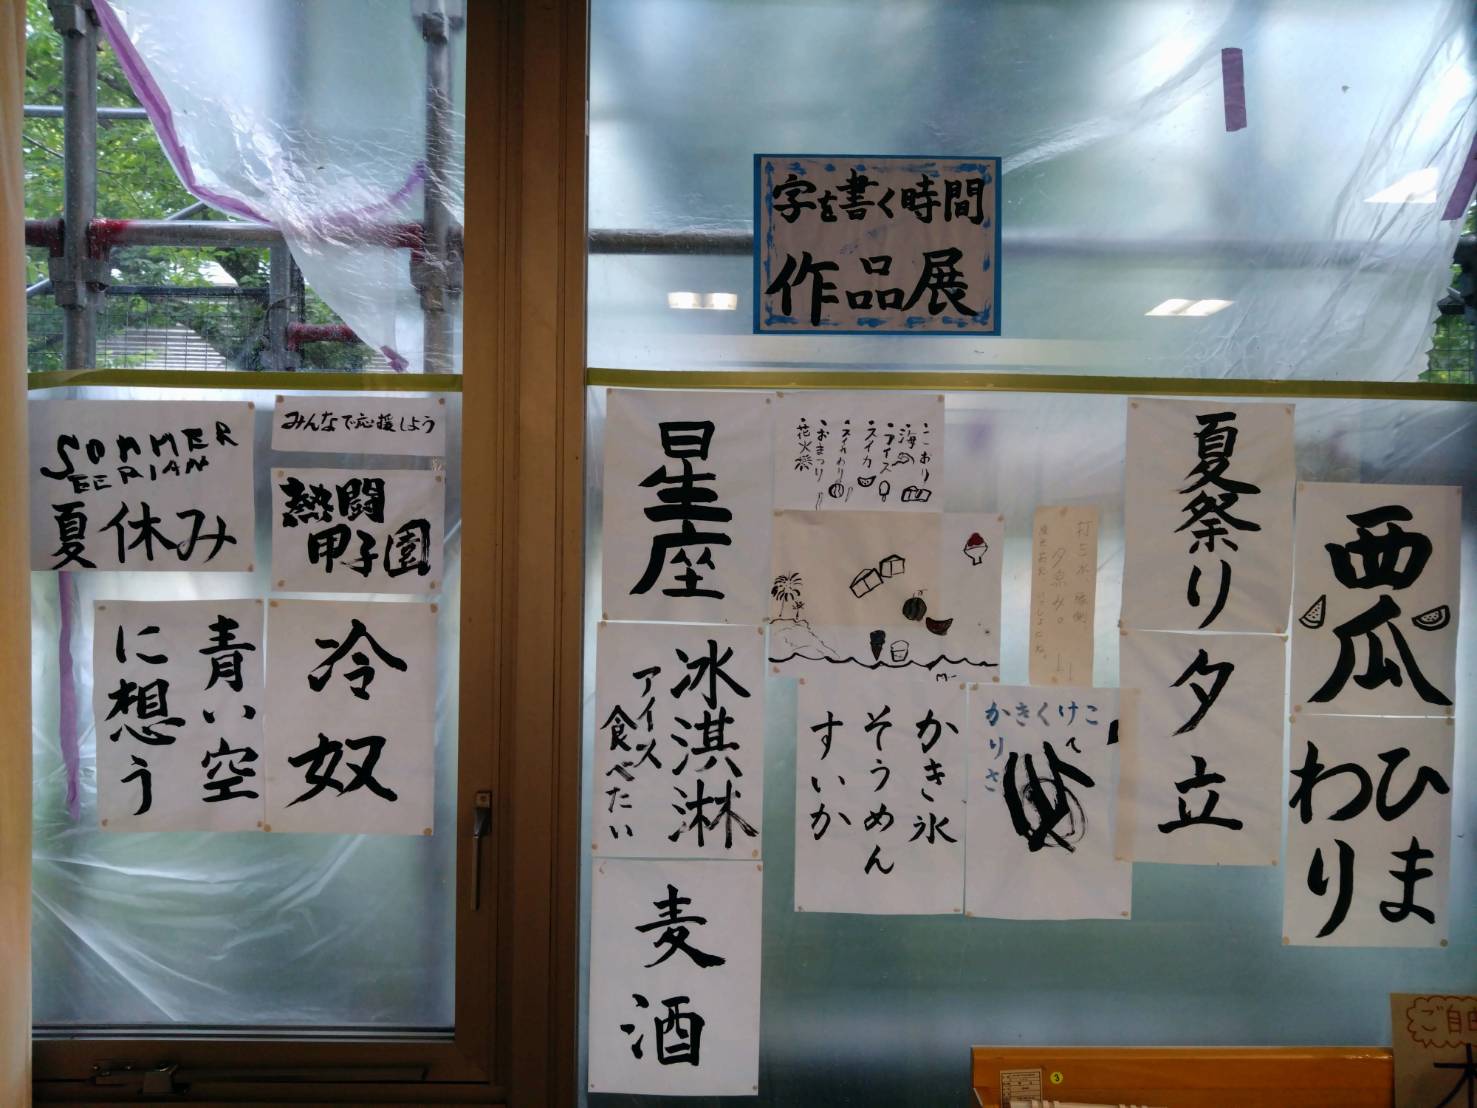 字を書く時間
作品展
SOMMER
EERIAN
夏休み
みんなで応援しよう
熱闘
甲子園
青い空
に想う
冷奴
星座
・こおり
・海
・アイス
・スイカ
・スイカわり
・おまつり
・花火
氷淇淋
アイス
食べたい
麦酒
かき氷
そうめん
すいか
打ち水、縁側
夕涼み。
かきくけこ
りさ
夏祭り
夕立
西瓜
ひま
わり
ご自由
3